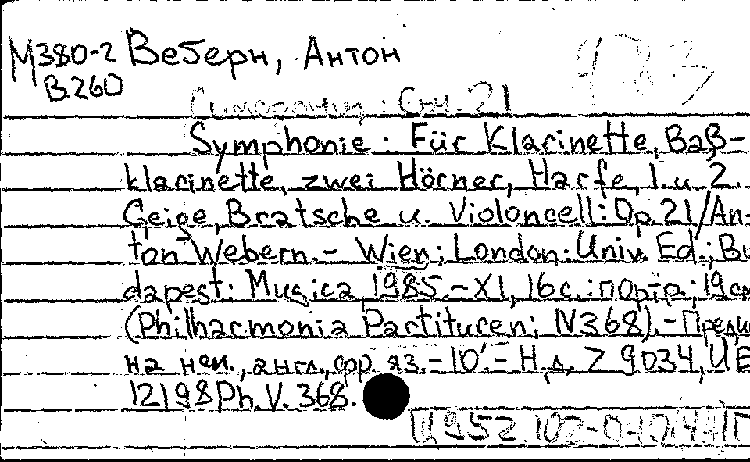 М380-2 Веберн, Антон
В.260
Симфония: Соч. 21
Symphonie: Für Klarinette, Baß-
klarinette, zwei Hörner, Harfe, 1. u. 2.
Geige, Bratsche u. Violoncell: Op. 21/An-
ton Webern. - Wien; London: Univ. Ed.; Bu
dapest: Musica, 1985. - XI, 16 с.: портр; 19 см
(Philharmonia Partituren; N368). - Преди
на нем., англ., фр. яз. - 10'. - Н.д. Z 9034, UE
12198 Ph. V. 368.